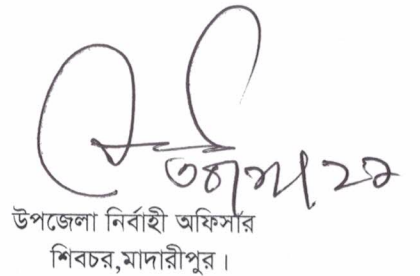 উপজেলা নির্বাহী অফিসার
শিবচর,মাদারীপুর।